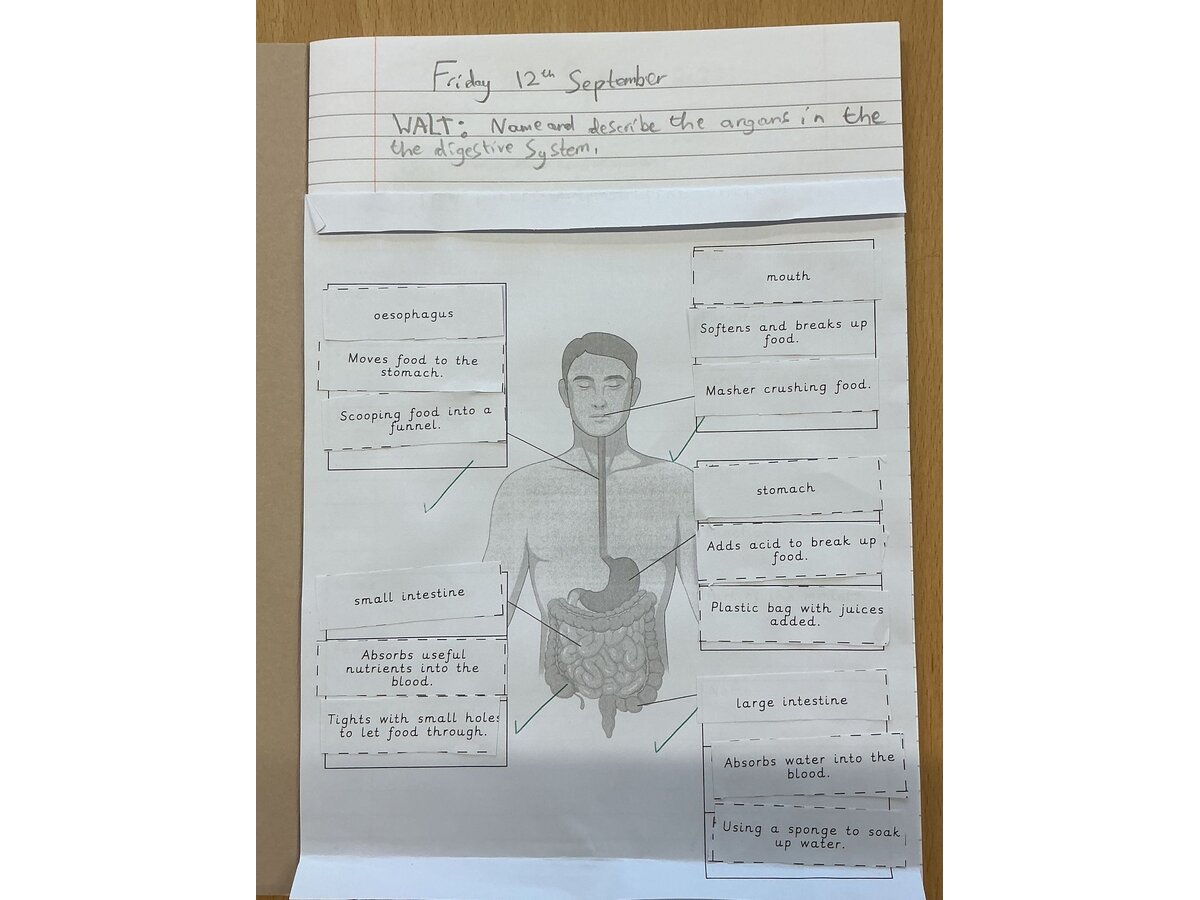 Friday 12th September
WALT: Name and describe the argans in the
the digestive System.
oesophagus
Moves food to the
stomach.
Scooping food into a
funnel.
small intestine
Absorbs useful
nutrients into the
blood.
Tights with small holes
to let food through.
mouth
Softens and breaks up
food.
Masher crushing food.
stomach
Adds acid to break up
food.
Plastic bag with juices
added.
large intestine
Absorbs water into the
blood.
Using a sponge to soak
up water.